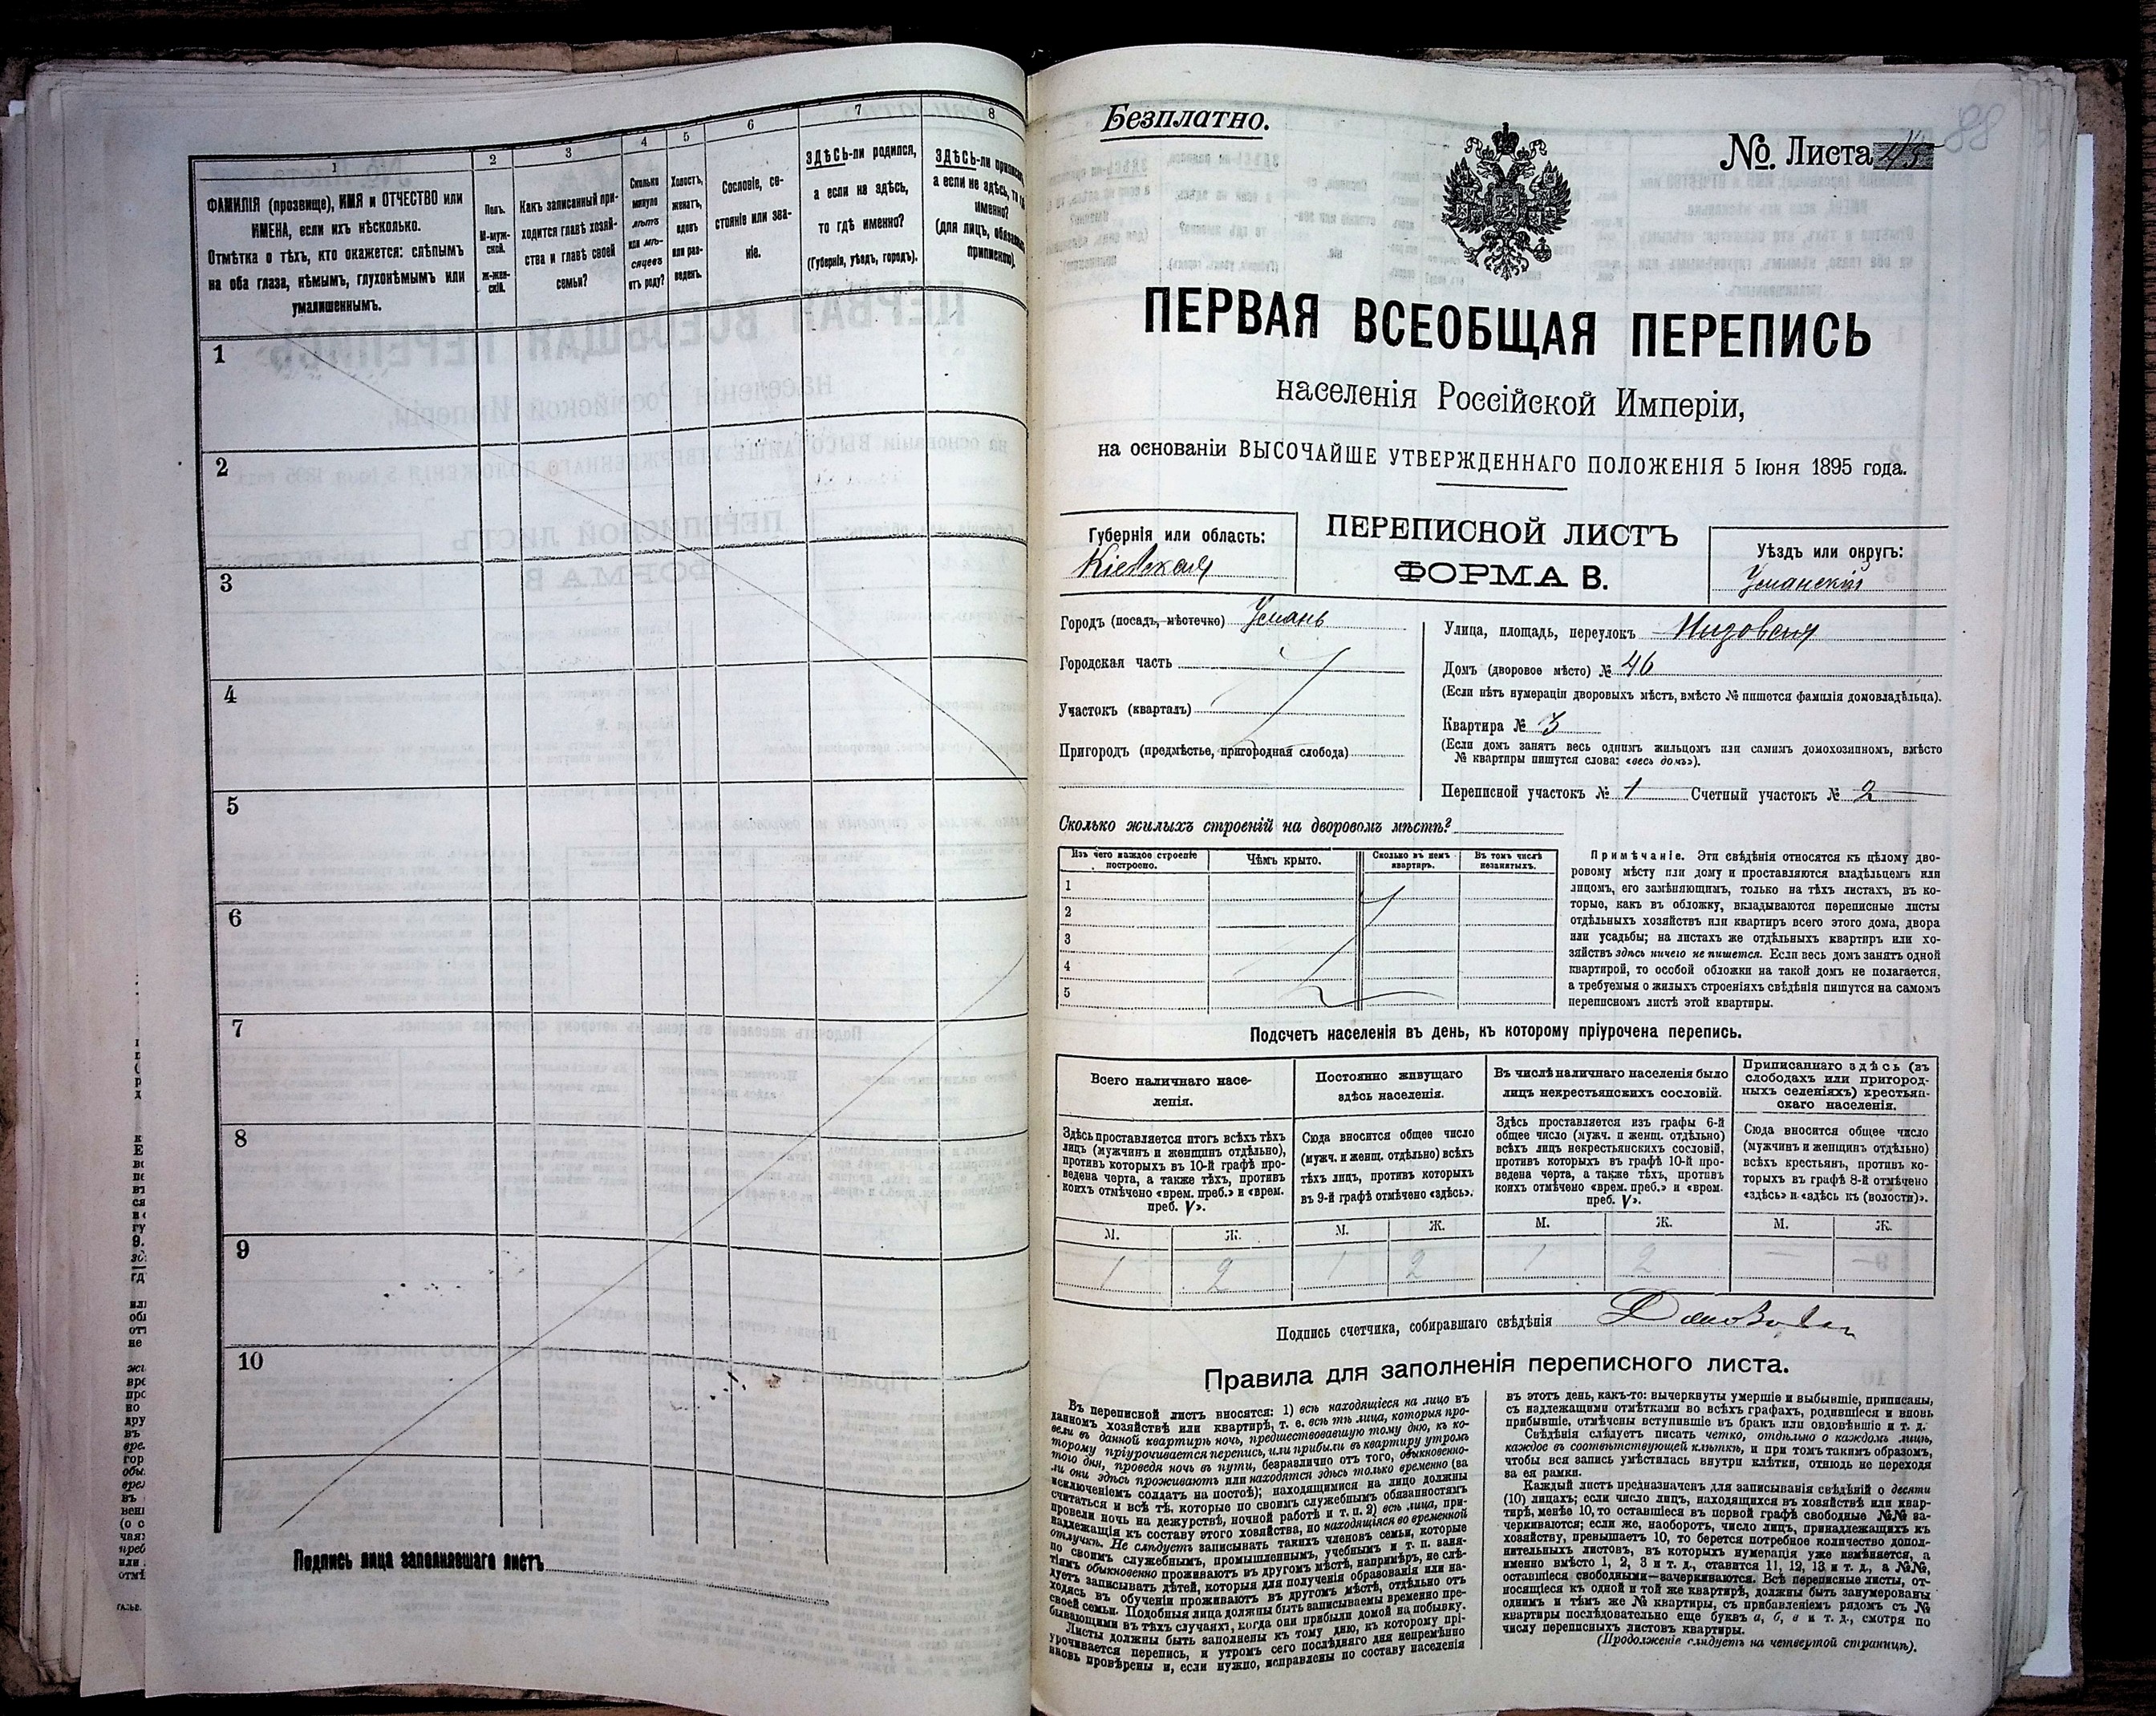 1
ФАМИЛІЯ (прозвище), ИМЯ и ОТЧЕСТВО или
ИМЕНА, если ихъ нѣсколько.
Отмѣтка о тѣхъ, кто окажется: слѣпымъ
на оба глаза, нѣмымъ, глухонѣмымъ или
умалишеннымъ.
2
Полъ.
М-муж-
ской.
Ж-жен-
скій.
3
Какъ записанный при-
ходится главѣ хозяй-
ства и главѣ своей
семьи?
4
Сколько
минуло
лѣтъ
или мѣ-
сяцевъ
отъ роду?
5
Холостъ,
женатъ,
вдовъ
или раз-
веденъ.
6
Сословіе, со-
стояніе или зва-
ніе.
7
ЗДѢСЬ-ли родился,
а если не здѣсь,
то гдѣ именно?
(Губернія, уѣздъ, городъ).
8
ЗДѢСЬ-ли
а если не здѣсь,
именно?
(для лицъ,
1
2
3
4
5
6
7
8
9
10
Подпись лица заполнявшаго листъ
Безплатно.
88
№. Листа 45
ПЕРВАЯ ВСЕОБЩАЯ ПЕРЕПИСЬ
населенія Россійской Имперіи,
на основаніи ВЫСОЧАЙШЕ УТВЕРЖДЕННАГО ПОЛОЖЕНІЯ 5 Іюня 1895 года.
Губернія или область:
Кіевская
ПЕРЕПИСНОЙ ЛИСТЪ
ФОРМА В.
Уѣздъ или округъ:
Уманскій
Городъ (посадъ, мѣстечко) Умань
Городская часть
Участокъ (кварталъ)
Пригородъ (предмѣстье, пригородная слобода)
Улица, площадь, переулокъ
Домъ (дворовое мѣсто) № 46
(Если нѣтъ нумераціи дворовыхъ мѣстъ, вмѣсто № пишется фамилія домовладѣльца).
Квартира № 3
(Если домъ занятъ весь однимъ жильцомъ или самимъ домохозяиномъ, вмѣсто
№ квартиры пишутся слова: «весь домъ»).
Переписной участокъ № 1 Счетный участокъ № 2
Сколько жилыхъ строеній на дворовомъ мѣстѣ?
Изъ чего каждое строеніе
построено.
Чѣмъ крыто.
Сколько въ немъ
квартиръ.
Въ томъ числѣ
незанятыхъ.
1
2
3
4
5
Примѣчаніе. Эти свѣдѣнія относятся къ цѣлому дво-
ровому мѣсту или дому и проставляются владѣльцемъ или
лицомъ, его замѣняющимъ, только на тѣхъ листахъ, въ ко-
торые, какъ въ обложку, вкладываются переписные листы
отдѣльныхъ хозяйствъ или квартиръ всего этого дома, двора
или усадьбы; на листахъ же отдѣльныхъ квартиръ или хо-
зяйствъ здѣсь ничего не пишется. Если весь домъ занятъ одной
квартирой, то особой обложки на такой домъ не полагается,
а требуемыя о жилыхъ строеніяхъ свѣдѣнія пишутся на самомъ
переписномъ листѣ этой квартиры.
Подсчетъ населенія въ день, къ которому пріурочена перепись.
Всего наличнаго насе-
ленія.
Здѣсь проставляется итогъ всѣхъ тѣхъ
лицъ (мужчинъ и женщинъ отдѣльно),
противъ которыхъ въ 10-й графѣ про-
ведена черта, а также тѣхъ, противъ
коихъ отмѣчено «врем. преб.» и «врем.
преб. V».
Постоянно живущаго
здѣсь населенія.
Сюда вносится общее число
(мужч. и женщ. отдѣльно) всѣхъ
тѣхъ лицъ, противъ которыхъ
въ 9-й графѣ отмѣчено «здѣсь».
Въ числѣ наличнаго населенія было
лицъ некрестьянскихъ сословій.
Здѣсь проставляется изъ графы 6-й
общее число (мужч. и женщ. отдѣльно)
всѣхъ лицъ некрестьянскихъ сословій,
противъ которыхъ въ графѣ 10-й про-
ведена черта, а также тѣхъ, противъ
коихъ отмѣчено «врем. преб.» и «врем.
преб. V».
Приписаннаго здѣсь (въ
слободахъ или пригород-
ныхъ селеніяхъ) крестьян-
скаго населенія.
Сюда вносится общее число
(мужчинъ и женщинъ отдѣльно)
всѣхъ крестьянъ, противъ ко-
торыхъ въ графѣ 8-й отмѣчено
«здѣсь» и «здѣсь къ (волости)».
М. Ж. М. Ж. М. Ж. М. Ж.
1 2 1 2 1 2 — —
Подпись счетчика, собиравшаго свѣдѣнія
Правила для заполненія переписного листа.
Въ переписной листъ вносятся: 1) всѣ находящіеся на лицо въ
данномъ хозяйствѣ или квартирѣ, т. е. всѣ тѣ лица, которыя про-
вели въ данной квартирѣ ночь, предшествовавшую тому дню, къ ко-
торому пріурочивается перепись, или прибыли въ квартиру утромъ
того дня, проведя ночь въ пути, безразлично отъ того, обыкновенно-
ли они здѣсь проживаютъ или находятся здѣсь только временно (за
исключеніемъ солдатъ на постоѣ); находящимися на лицо должны
считаться и всѣ тѣ, которые по своимъ служебнымъ обязанностямъ
провели ночь на дежурствѣ, ночной работѣ и т. п. 2) всѣ лица, при-
надлежащія къ составу этого хозяйства, но находящіяся во временной
отлучкѣ. Не слѣдуетъ записывать такихъ членовъ семьи, которые
по своимъ служебнымъ, промышленнымъ, учебнымъ и т. п. заня-
тіямъ обыкновенно проживаютъ въ другомъ мѣстѣ, напримѣръ, не слѣ-
дуетъ записывать дѣтей, которыя для полученія образованія или на-
ходясь въ обученіи проживаютъ въ другомъ мѣстѣ, отдѣльно отъ
своей семьи. Подобныя лица должны быть записываемы временно пре-
бывающими въ тѣхъ случаяхъ, когда они прибыли домой на побывку.
Листы должны быть заполнены къ тому дню, къ которому прі-
урочивается перепись, и утромъ сего послѣдняго дня непремѣнно
вновь провѣрены и, если нужно, исправлены по составу населенія
въ этотъ день, какъ-то: вычеркнуты умершіе и выбывшіе, приписаны,
съ надлежащими отмѣтками во всѣхъ графахъ, родившіеся и вновь
прибывшіе, отмѣчены вступившіе въ бракъ или овдовѣвшіе и т. д.
Свѣдѣнія слѣдуетъ писать четко, отдѣльно о каждомъ лицѣ,
каждое въ соотвѣтствующей клѣткѣ, и при томъ такимъ образомъ,
чтобы вся запись умѣстилась внутри клѣтки, отнюдь не переходя
за ея рамки.
Каждый листъ предназначенъ для записыванія свѣдѣній о десяти
(10) лицахъ; если число лицъ, находящихся въ хозяйствѣ или квар-
тирѣ, менѣе 10, то оставшіеся въ первой графѣ свободные №№ за-
черкиваются; если же, наоборотъ, число лицъ, принадлежащихъ къ
хозяйству, превышаетъ 10, то берется потребное количество допол-
нительныхъ листовъ, въ которыхъ нумерація уже измѣняется, а
именно вмѣсто 1, 2, 3 и т. д., ставится 11, 12, 13 и т. д., а №№,
оставшіеся свободными—зачеркиваются. Всѣ переписные листы, от-
носящіеся къ одной и той же квартирѣ, должны быть занумерованы
однимъ и тѣмъ же № квартиры, съ прибавленіемъ рядомъ съ №
квартиры послѣдовательно еще буквъ а, б, в и т. д., смотря по
числу переписныхъ листовъ квартиры.
(Продолженіе слѣдуетъ на четвертой страницѣ).